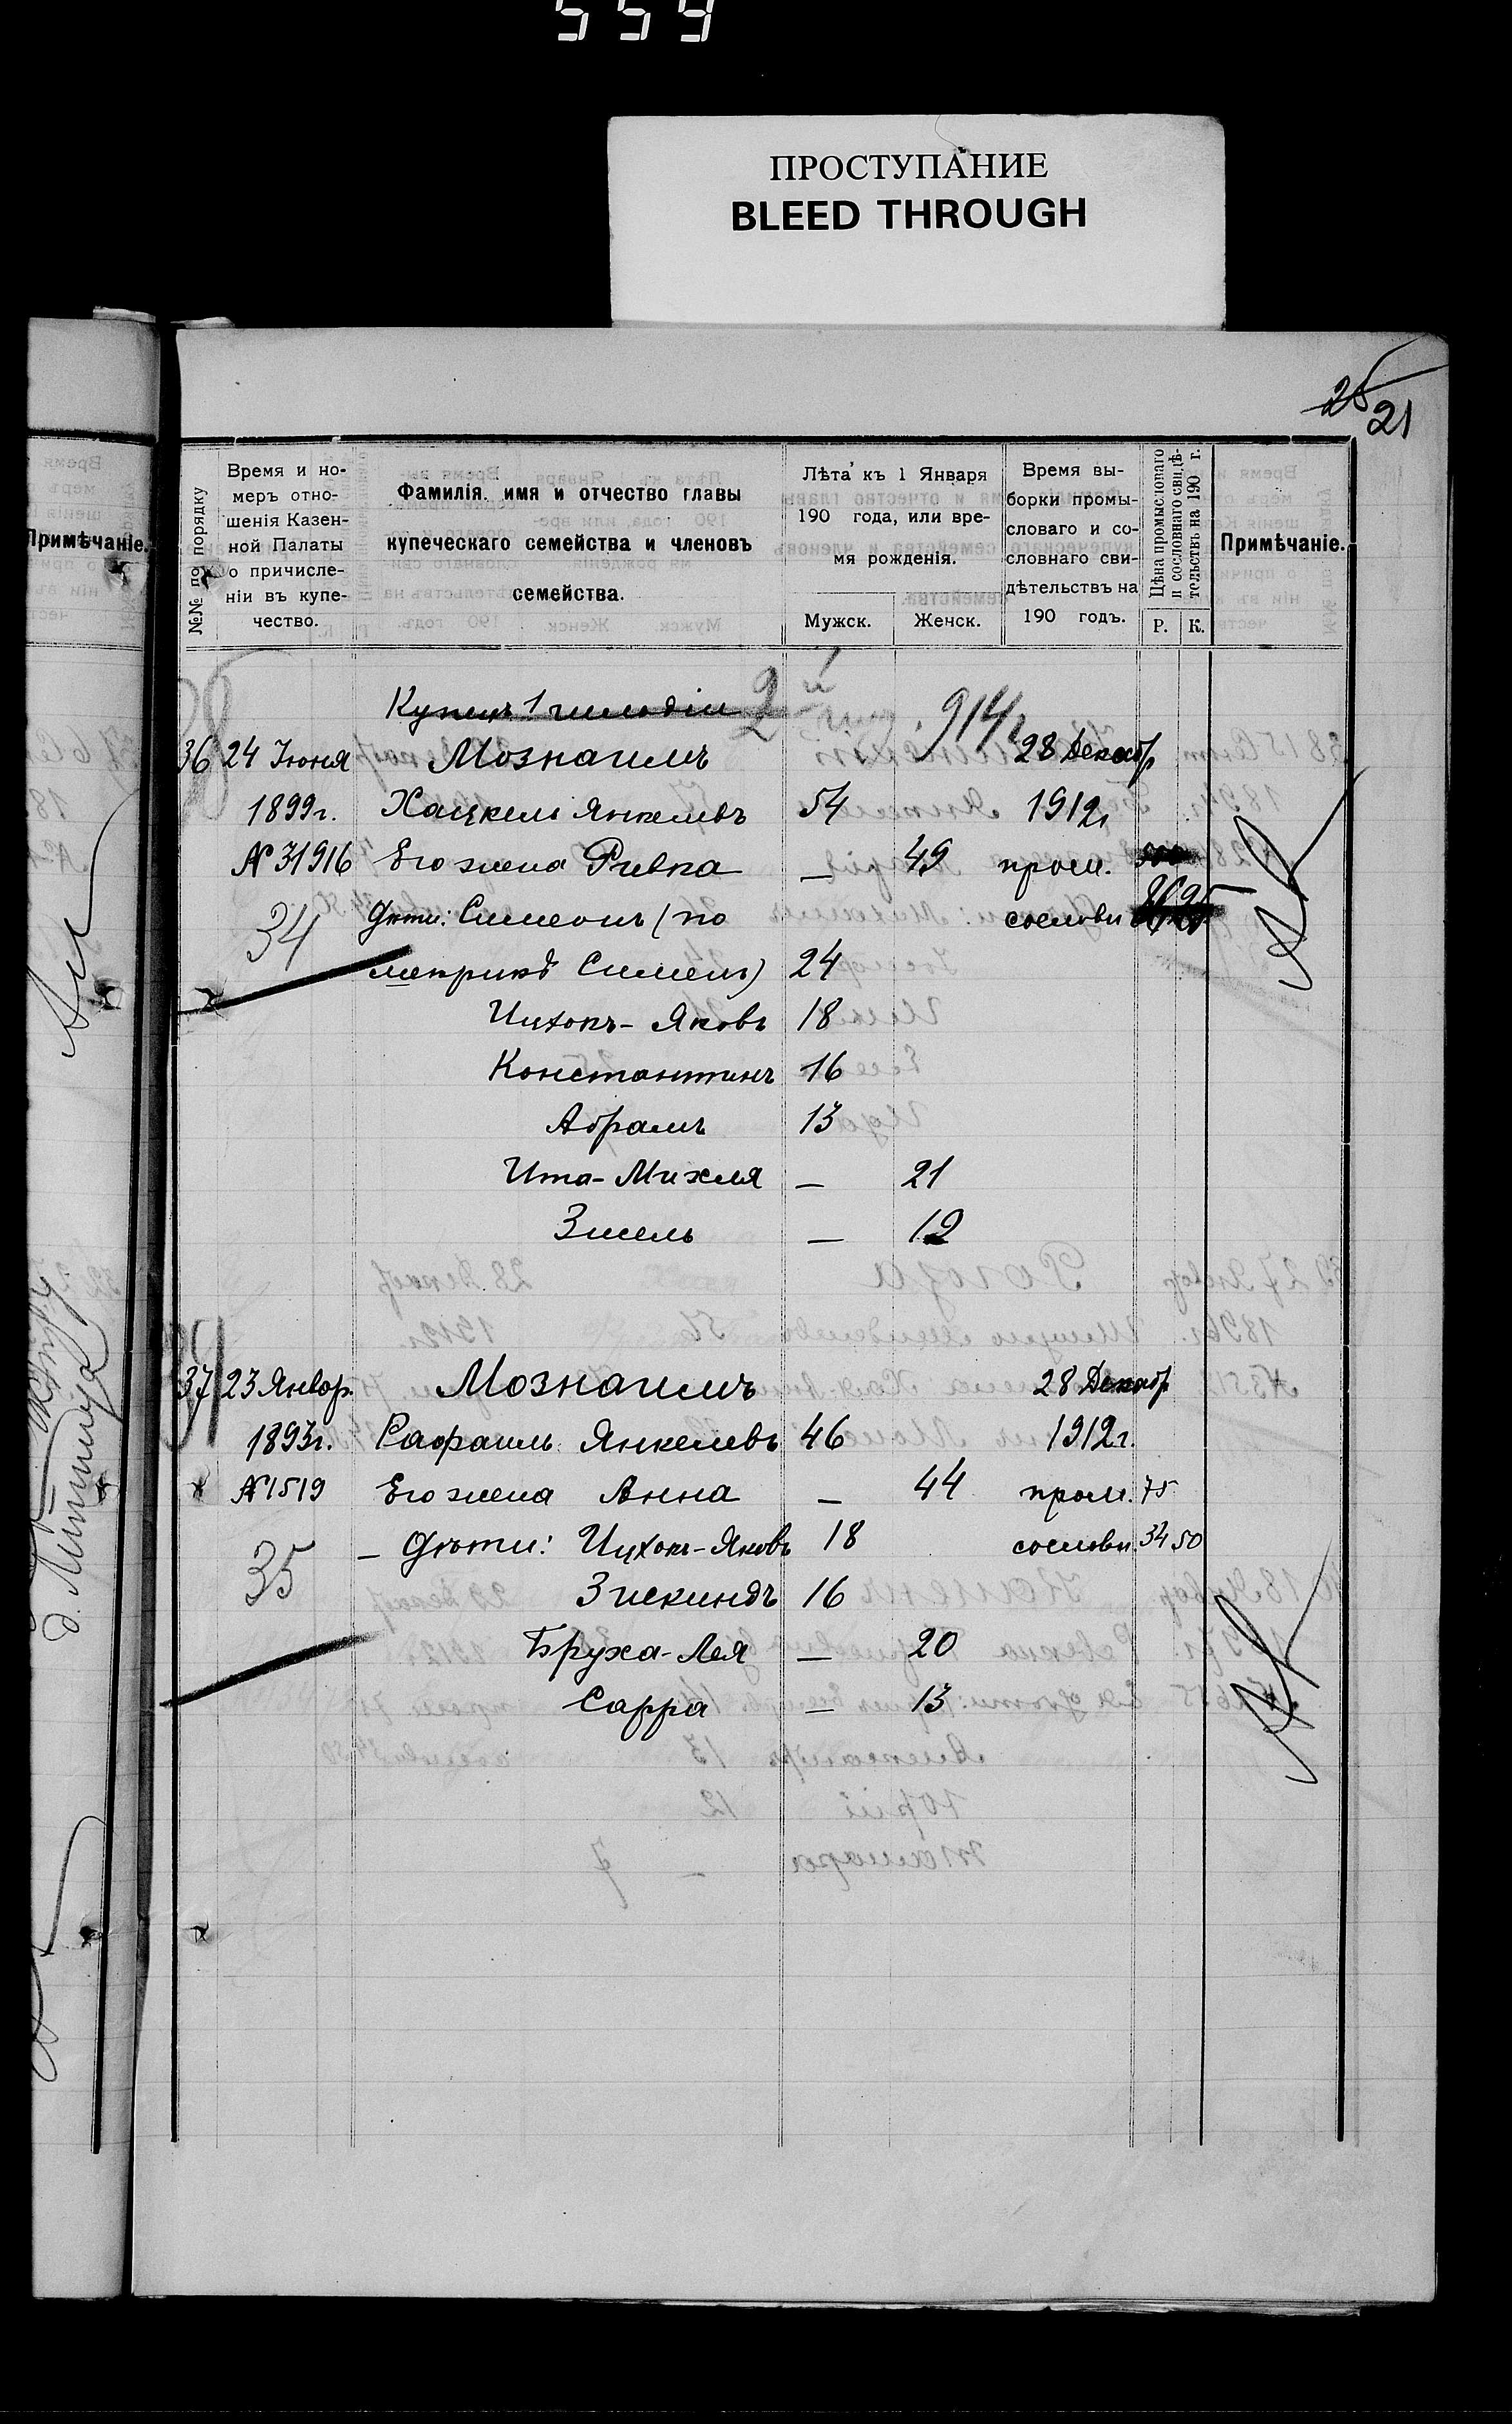 559
ПРОСТУПАНИЕ
BLEED THROUGH
25
21
Примѣчаніе.
№№ по порядку
Время и но-
меръ отно-
шенія Казен-
ной Палаты
о причисле-
ніи въ купе-
чество.
Фамилія, имя и отчество главы
купеческаго семейства и членовъ
семейства.
Лѣта къ 1 Января
190 года, или вре-
мя рожденія.
Мужск. Женск.
Время вы-
борки промы-
словаго и со-
словнаго сви-
дѣтельствъ на
190 годъ.
Цѣна промысловаго
и сословнаго свидѣ-
тельствъ на 190 г.
Р. К.
Примѣчаніе.
Купецъ 1 гильдіи 2 й 914 г
36 24 Іюня Мознаимъ 28 Декабр
1899г. Хацкель Янкелевъ 54 1912г
№ 31916 Его жена Ривка — 49 пром. 500
34 Дѣти: Симеонъ (по сословн
метрикѣ Симель) 24
Ицхокъ-Яковъ 18
Константинъ 16
Абрамъ 13
Ита-Михля — 21
Зисель — 12
37 23 Январ. Мознаимъ 28 Декабр
1893г. Рафаилъ Янкелевъ 46 1912г.
№ 1519 Его жена Анна — 44 пром. 75
35 — Дѣти: Ицхокъ-Яковъ 18 сословн. 34 50
Зискиндъ 16
Бруха-Лея — 20
Сарра — 13